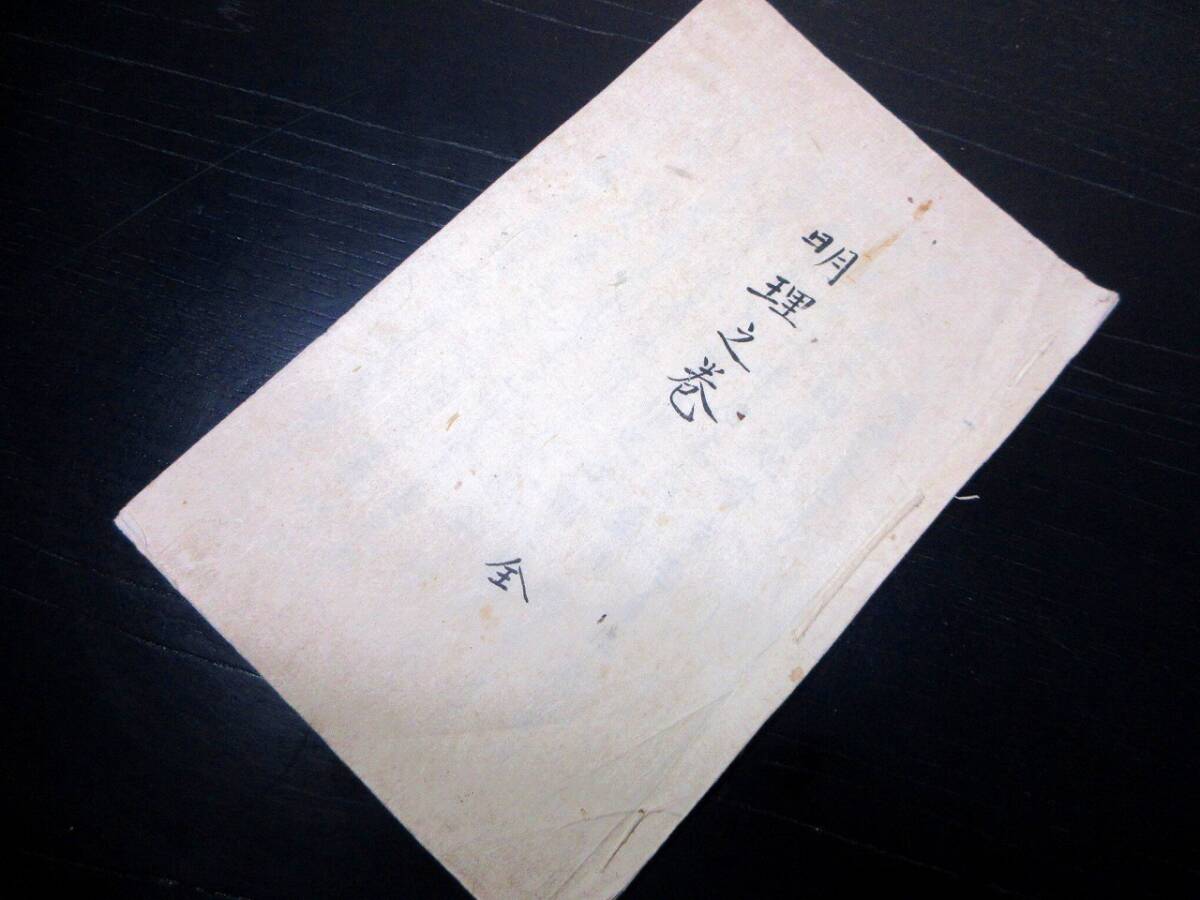 明理之巻
全